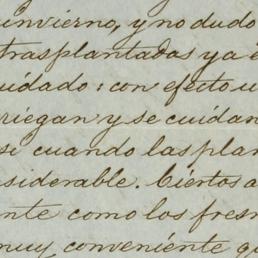 invierno, y no dudo
trasplantadas ya e
uidado: con efecto u
riegan y se cuidan
se cuando las plan
nsiderable. Ciertos a
nte como los fresn
muy conveniente qu